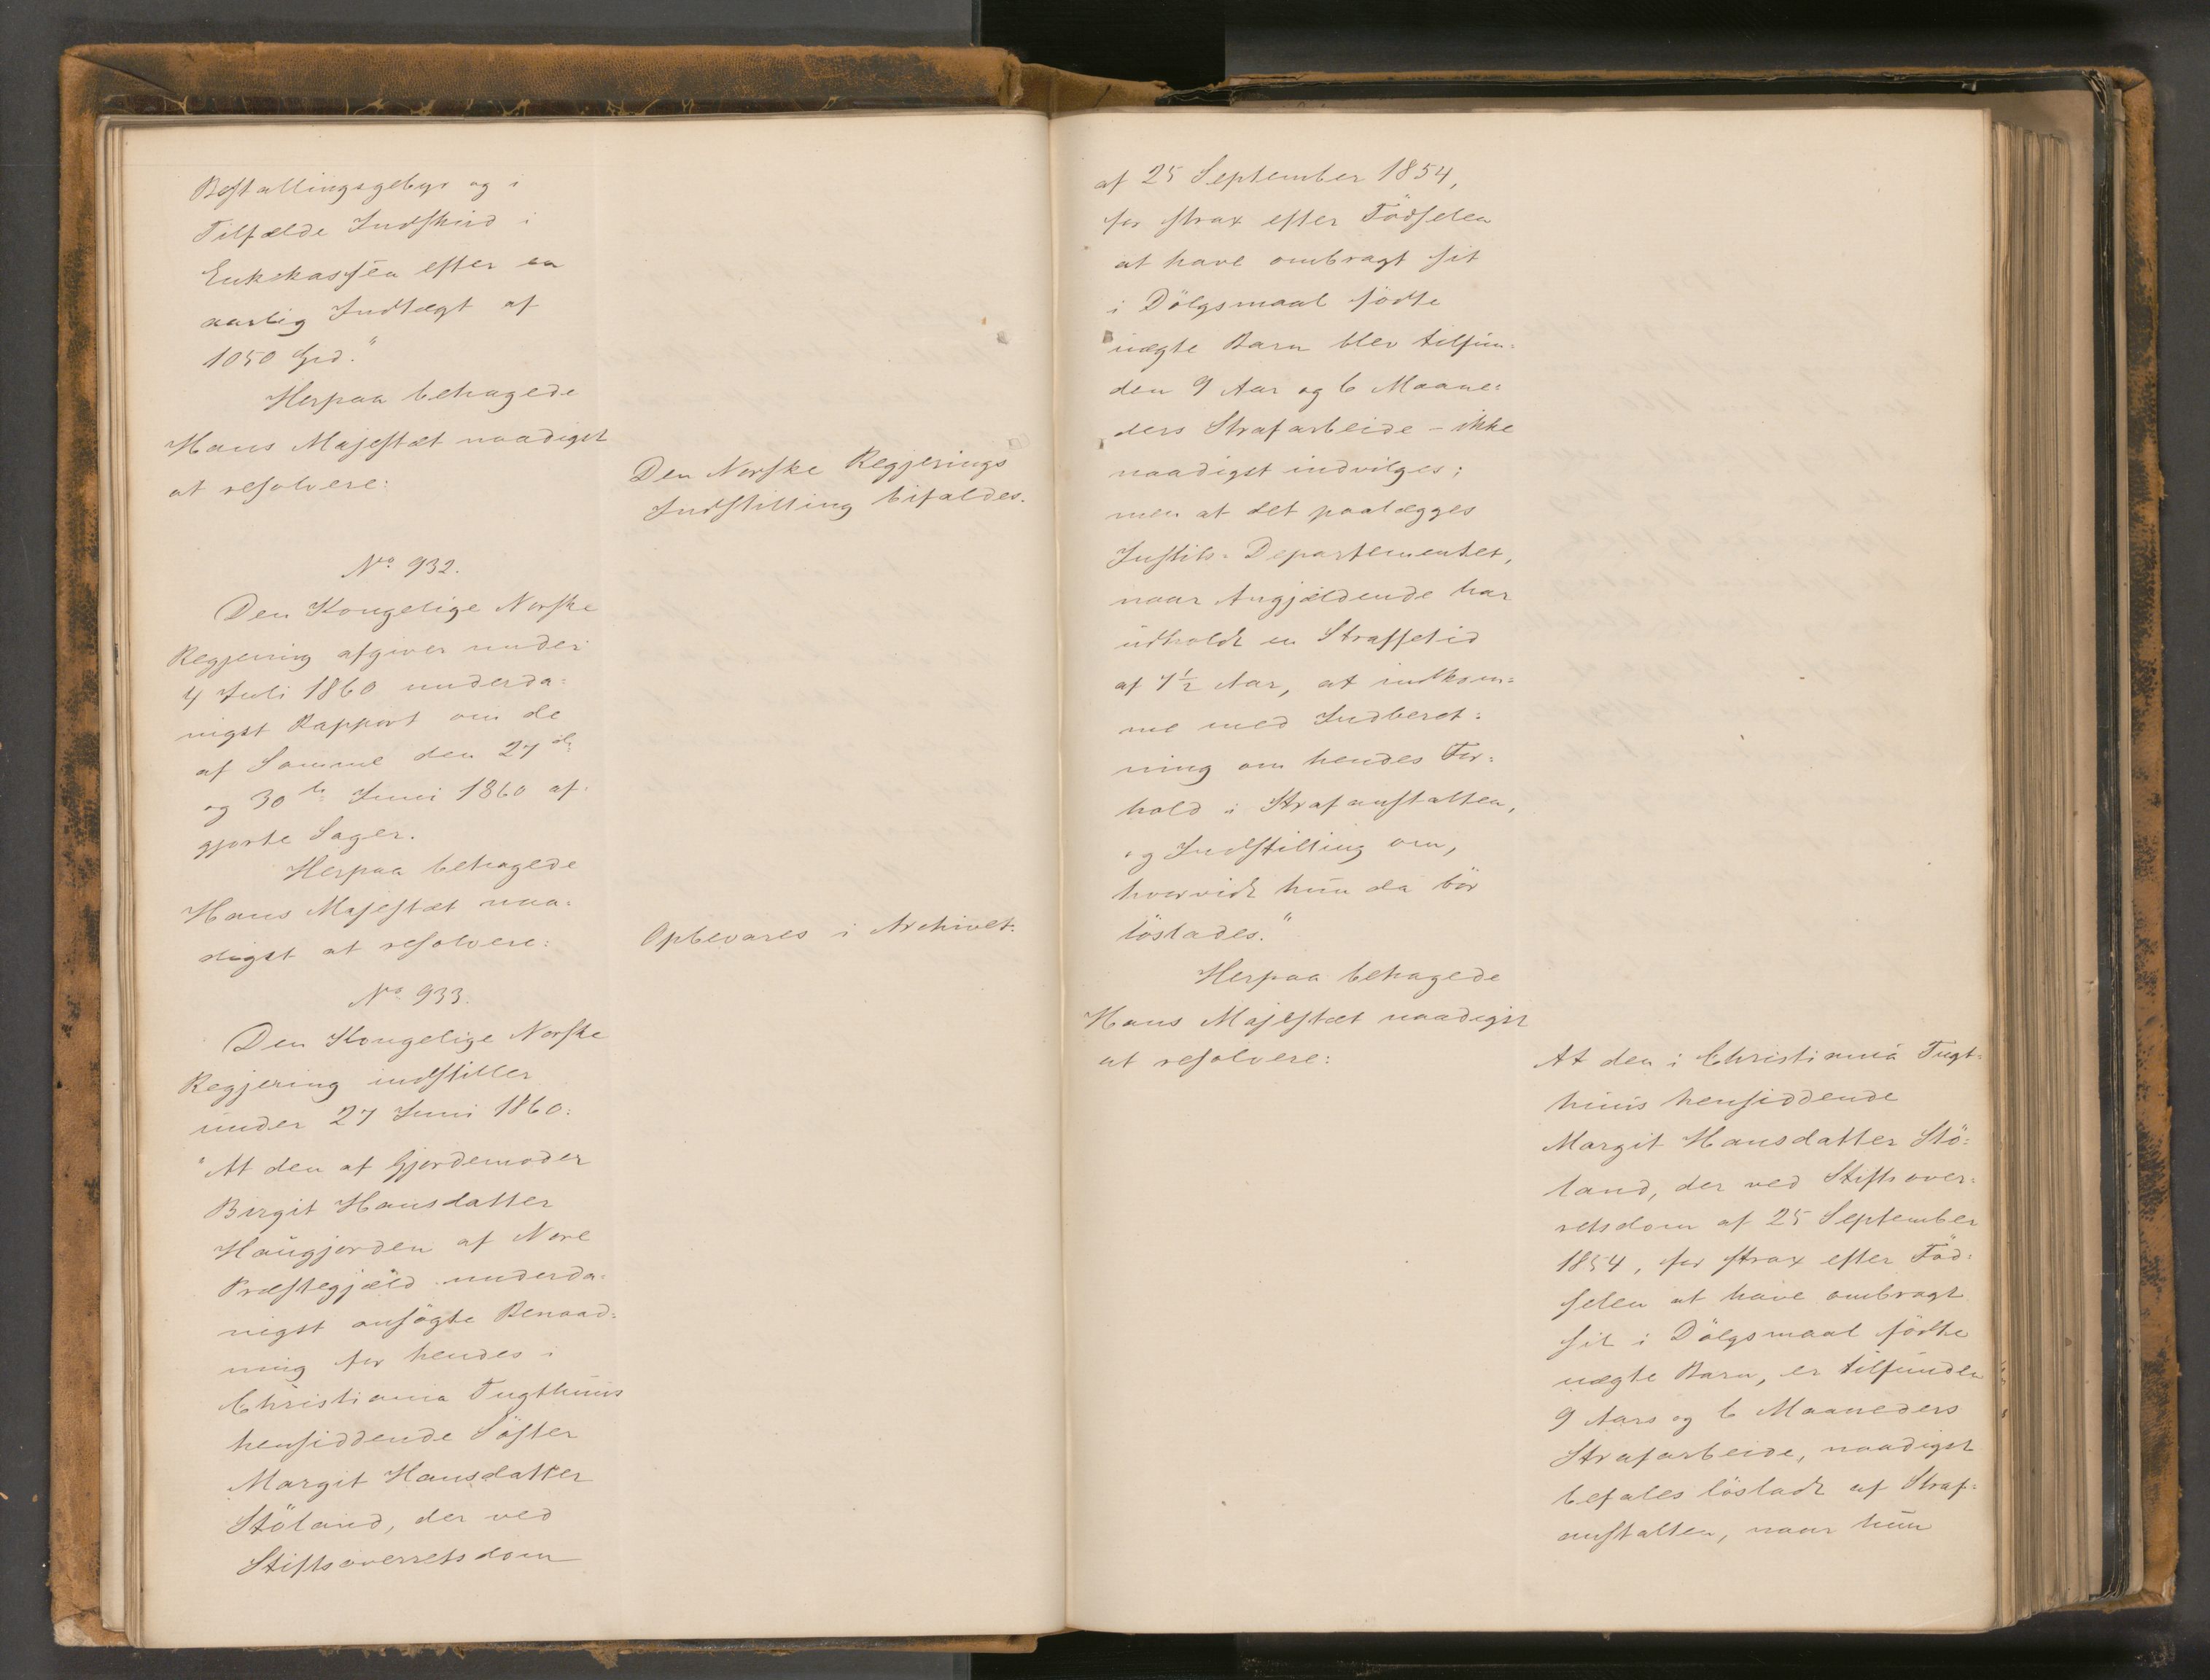 Bestallingsgebyr og i
Tilfælde Indskud i
Enkekassen efter en
aarlig Indtægt af
1050 Spd."
Herpaa behagede
Hans Majestæt naadigst
at resolvere:
Den Norske Regjerings
Indstilling bifaldes.
No. 932.
Den Kongelige Norske
Regjering afgiver under
4 Juli 1860 underda=
nigst Rapport om de
af Samme den 27de
og 30te Juni 1860 af=
gjorte Sager.
Herpaa behagede
Hans Majestæt naa=
digst at resolvere:
Opbevares i Archivet.
No. 933.
Den Kongelige Norske
Regjering indstiller
under 27 Juni 1860:
"At den af Gjordemoder
Birgit Hansdatter
Haugjorden af Nore
Præstegjæld underda=
nigst ansögte Benaad=
ning for hendes i
Christiania Tugthuus
hensiddende Söster
Margit Hansdatter
Stöland, der ved
Stiftsoverretsdom
af 25 September 1854,
for strax efter Födselen
at have ombragt sit
i Dölgsmaal födte
uægte Barn blev tilfun=
den 9 Aar og 6 Maane=
ders Strafarbeide - ikke
naadigst indvilges;
men at det paalægges
Justits=Departementet,
naar Angjældende har
udholdt en Straffetid
af 7½ Aar, at indkom=
me med Indberet=
ning om hendes For=
hold i Strafanstalten,
og Indstilling om,
hvorvidt hun da bör
löslades."
Herpaa behagede
Hans Majestæt naadigst
at resolvere:
At den i Christiania Tugt=
huus hensiddende
Margit Hansdatter Stö=
land, der ved Stiftsover=
retsdom af 25 September
1854, for strax efter Föd=
selen at have ombragt
sit i Dölgsmaal födte
uægte Barn, er tilfunden
9 Aars og 6 Maaneders
Strafarbeide, naadigst
befales lösladt af Straf=
anstalten, naar hun